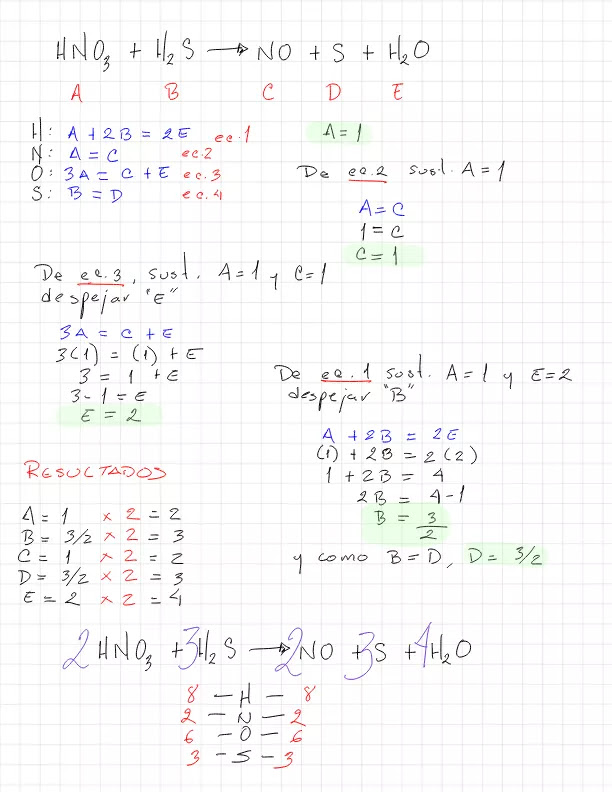 HNO₃ + H₂S → NO + S + H₂O
A B C D E
H: A + 2B = 2E ec.1
N: A = C ec.2
O: 3A = C + E ec.3
S: B = D ec.4
A = 1
De ec.2 sust. A = 1
A = C
1 = C
C = 1
De ec.3, sust. A=1 y C=1
despejar "E"
3A = C + E
3(1) = (1) + E
3 = 1 + E
3-1 = E
E = 2
De ec.1 sust. A=1 y E=2
despejar "B"
A + 2B = 2E
(1) + 2B = 2(2)
1 + 2B = 4
2B = 4-1
B = 3/2
y como B=D, D= 3/2
RESULTADOS
A = 1 × 2 = 2
B = 3/2 × 2 = 3
C = 1 × 2 = 2
D = 3/2 × 2 = 3
E = 2 × 2 = 4
2HNO₃ + 3H₂S → 2NO + 3S + 4H₂O
8 – H – 8
2 – N – 2
6 – O – 6
3 – S – 3